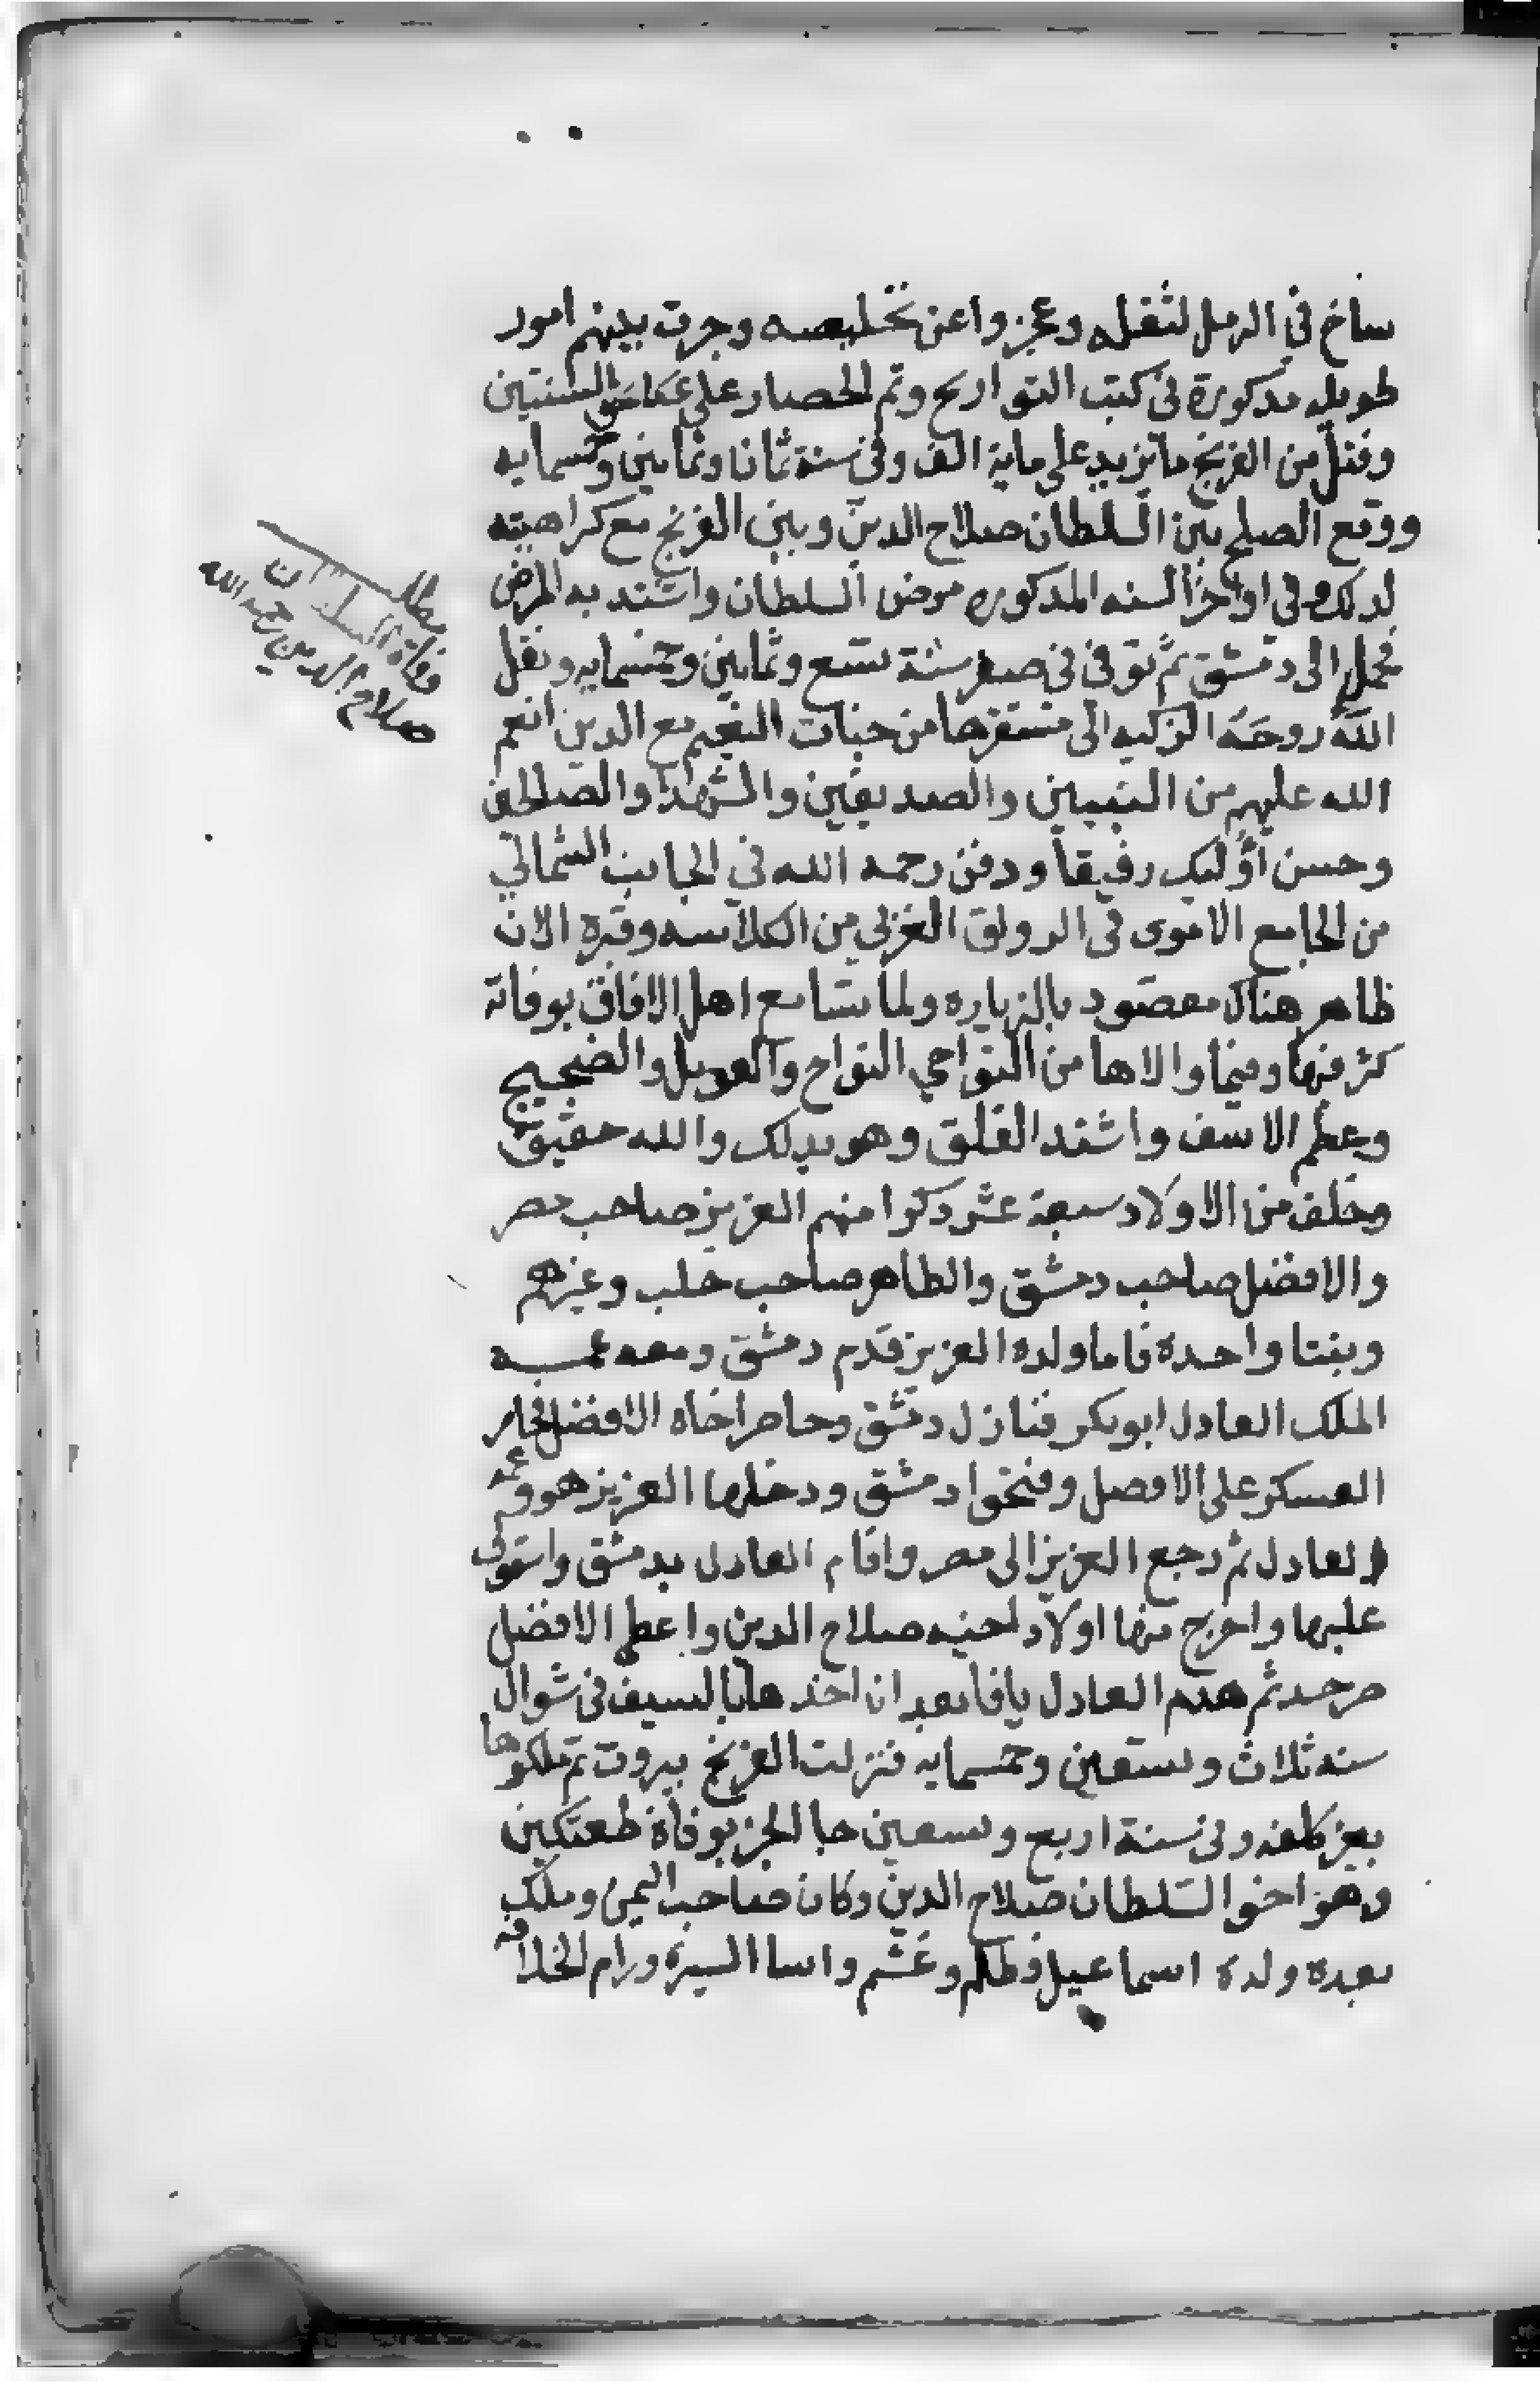 ساخ في الرمل لثقله وعجزوا عن تخليصه وجرت بينهم امور
طويله مدكورة في كتب التواريح وتم الحصار على عكا نحو السنتين
وقتل من الفرنج ما يزيد على ماية الف وفي سنة ثمانا وثمانين وخمسمايه
ووقع الصلح بين السلطان صلاح الدين وبين الفرنج مع كراهيته
لدلك وفي اواخر السنه المدكوره مرض السلطان واشتد به المرض
فحمل الى دمشق ثم توفى في صفر سنة تسع وثمانين وخمسمايه ونقل
الله روحه الزكيه الى مستقرها من جنات النعيم مع الدين انعم
الله عليهم من النبيين والصديقين والشهدا والصالحين
وحسن أوليك رفيقا ودفن رحمه الله في الجانب الشمالي
من الجامع الاموى في الرواق الغربي من الكلاسه وقبره الان
ظاهر هناك مقصود بالزياره ولما تسامع اهل الافاق بوفاته
كثر فيها وفيما والاها من النواحي النواح والعويل والضجيج
وعظم الاسف واشتد القلق وهو بدلك والله حقيق
وخلف من الاولاد سبعة عشر دكوا منهم العزيز صاحب مصر
والافضل صاحب دمشق والظاهر صاحب حلب وغيرهم
وبنتا واحدة فاما ولده العزيز قدم دمشق ومعه عمه
الملك العادل ابو بكر فنازل دمشق وحاصر اخاه الافضل فخامر
العسكر على الافضل وفتحوا دمشق ودخلها العزيز هو وعمه
العادل ثم رجع العزيز الى مصر واقام العادل بدمشق واستولى
عليها واخرج منها اولاد اخيه صلاح الدين واعطى الافضل
صرخد ثم هدم العادل يافا بعد ان اخدها بالسيف في شوال
سنه ثلاث وتسعين وخمسمايه فنزلت الفرنج بيروت ثم ملكوها
بغير كلفه وفي سنة اربع وتسعين جا الخبر بوفاة طغتكين
وهو اخو السلطان صلاح الدين وكان صاحب اليمن وملك
بعده ولده اسماعيل فظلم وغشم واسا السيرة ورام الخلافه
مطلب
وفاة السلطان
صلاح الدين رحمه الله